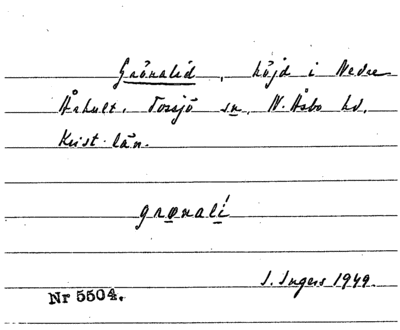 Grönalid, höjd i Nedre
Århult. Tossjö sn, N. Åsbo hd.
Krist. län.
grønalí
I. Ingers 1949.
Nr 5504.